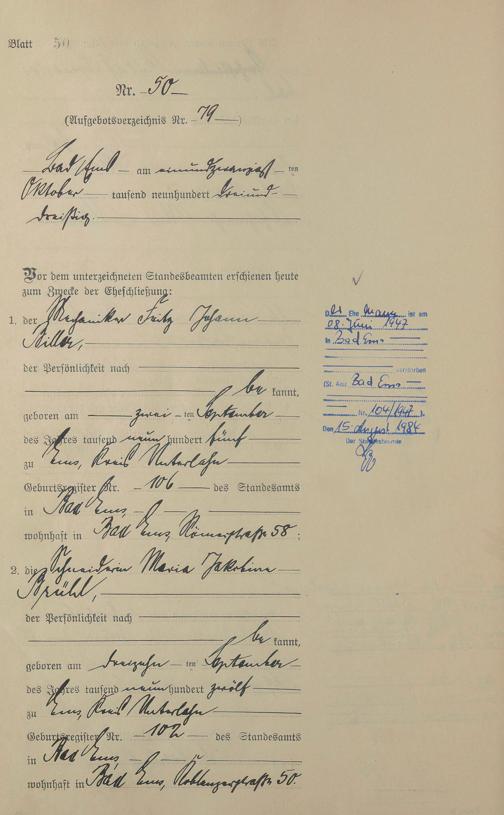 Blatt 50
Nr. 50
(Aufgebotsverzeichnis Nr. 79)
Bad Ems am einundzwanzigsten
Oktober tausend neunhundert dreiund-
dreißig.
Vor dem unterzeichneten Standesbeamten erschienen heute
zum Zwecke der Eheschließung:
1. der Mechaniker Fritz Johann
der Persönlichkeit nach
be kannt,
geboren am zwei ten September
des Jahres tausend neun hundert fünf
zu Ems, Kreis Unterlahn
Geburtsregister Nr. 106 des Standesamts
in Bad Ems
wohnhaft in Bad Ems Römerstraße 58;
2. die Schneiderin Maria Jakobine
Brühl,
der Persönlichkeit nach
be kannt,
geboren am dreizehn ten September
des Jahres tausend neun hundert zwölf
zu Ems, Kreis Unterlahn
Geburtsregister Nr. 102 des Standesamts
in Bad Ems
wohnhaft in Bad Ems, Koblenzerstraße 50.
Der Ehemann ist am
08. Juni 1947
in Bad Ems
verstorben
(St. Amt Bad Ems
Nr. 104/1947).
Den 15. August 1984
Der Standesbeamte